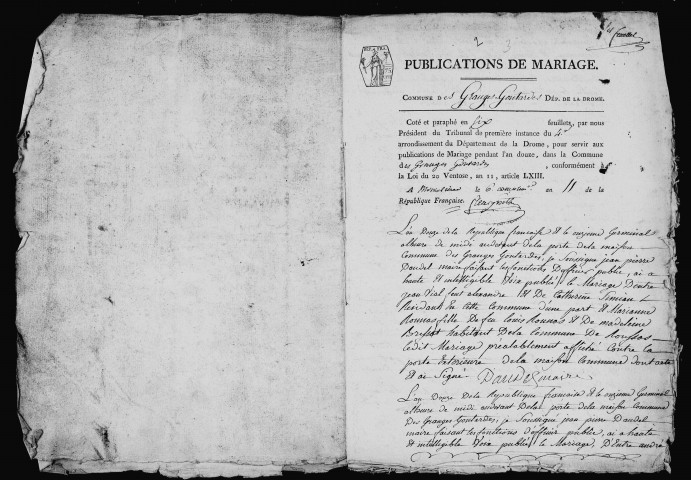 2 3
REP. FRA.
PUBLICATIONS DE MARIAGE.
COMMUNE Des Granges Gontardes DÉP. DE LA DROME.
Coté et paraphé en six feuillets, par nous
Président du Tribunal de première instance du 4e
arrondissement du Département de la Drome, pour servir aux
publications de Mariage pendant l'an douze, dans la Commune
des Granges Gontardes, conformément à
la Loi du 20 Ventose, an 11, article LXIII.
A Montelimar le 6 comp.re an 11 de la
République Française.
L'an Douze de la Republique francaise et le onzieme Germinal
a lheure de midi audevant de la porte de la maison
Commune des Granges Gontardes, je soussigné jean pierre
Daudel maire faisant les fonctions d'officier public, ai a
haute et intelligible Voix publié le Mariage D'entre
jean Vial feu alexandre et De Catherine Simian
Residant en cette Commune d'une part et Marianne
Roussas fille De feu Louis Roussas et De madeleine
habitant De la Commune De Roussas
ledit Mariage préalablement affiché Contre la
porte Exterieure de la maison Commune dont acte
Et ai Signé Daudel maire
L'an Douze De la Republique francaise et le onzieme Germinal
a lheure de midi audevant De la porte de la maison Commune
Des Granges Gontardes, je Soussigné jean pierre Daudel
maire faisant les fonctions d'officier public, ai a haute
et intelligible Voix publié le Mariage, D'Entre andré